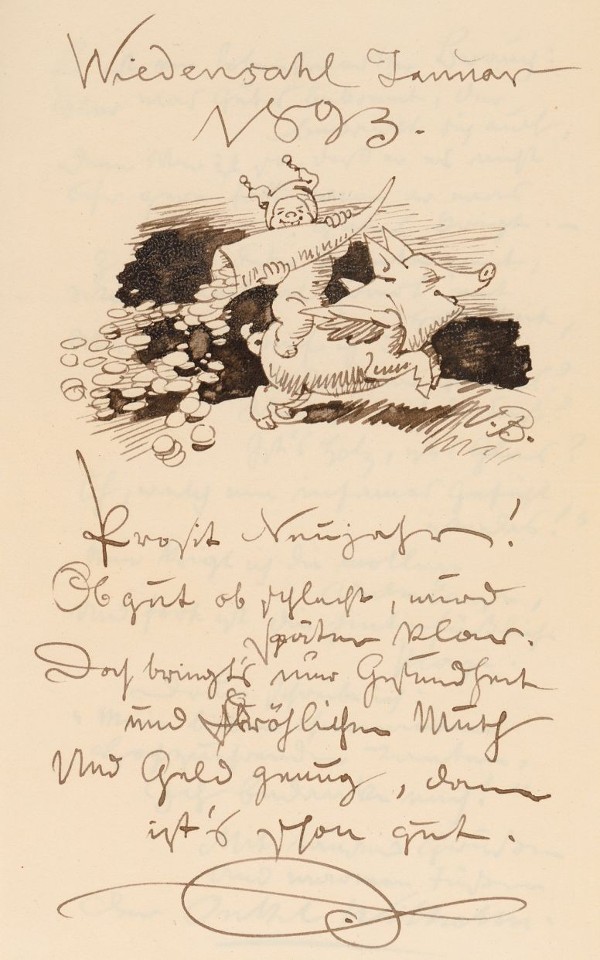 Wiedensahl Januar
1893.
W.B.
Prosit Neujahr!
Ob gut ob schlecht, wird
später klar.
Doch bringt's nur Gesundheit
und fröhlichen Muth
Und Geld genug, dann
ist's schon gut.